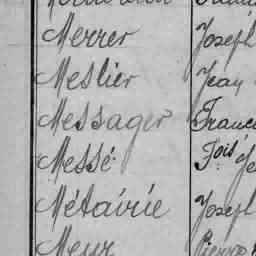 Merrer Joseph
Meslier Jean
Messager Franc
Messé Fois Je
Métairie Joseph
Meur Pierre